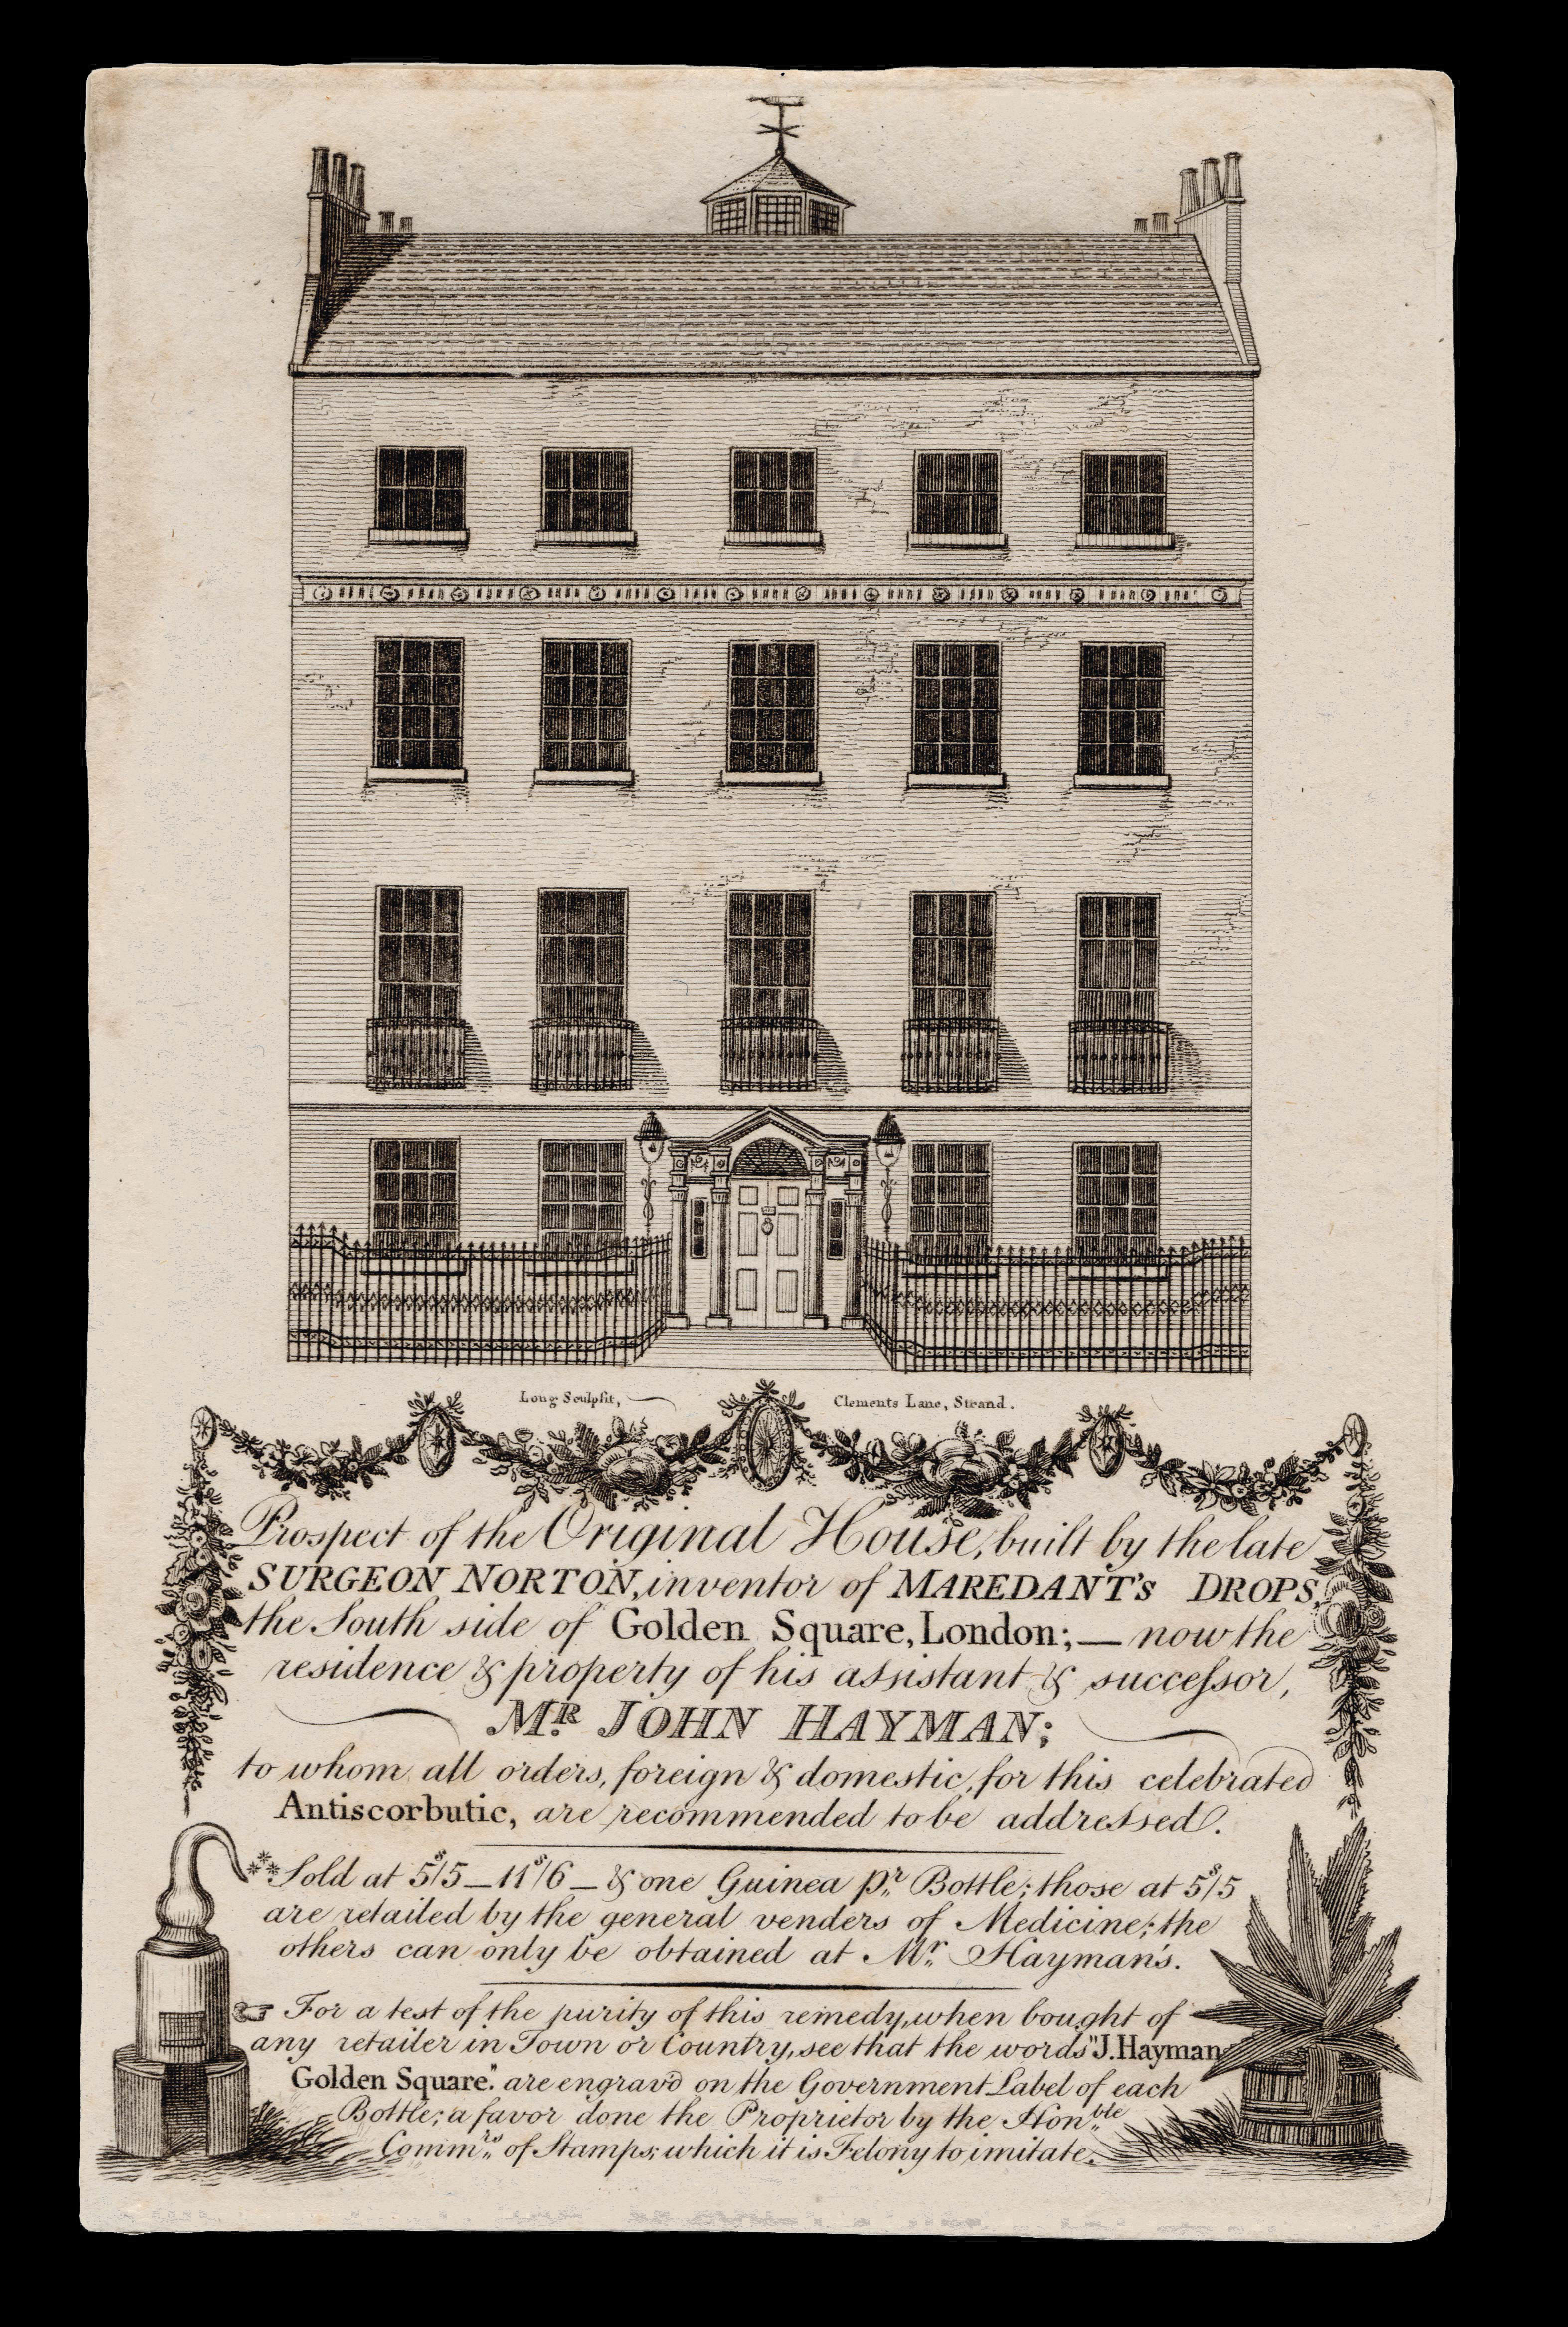 Long Sculpsit, Clements Lane, Strand.
Prospect of the Original House, built by the late
SURGEON NORTON, inventor of MAREDANT's DROPS,
the South side of Golden Square, London; — now the
residence & property of his assistant & successor,
Mr. JOHN HAYMAN;
to whom all orders, foreign & domestic, for this celebrated
Antiscorbutic, are recommended to be addressed.
⁂ Sold at 5s/5 — 11s/6 — & one Guinea pr. Bottle; those at 5s/5
are retailed by the general venders of Medicine; the
others can only be obtained at Mr. Hayman's.
☞ For a test of the purity of this remedy, when bought of
any retailer in Town or Country, see that the words "J. Hayman
Golden Square." are engrav'd on the Government Label of each
Bottle; a favor done the Proprietor by the Honble
Commrs. of Stamps; which it is Felony to imitate.